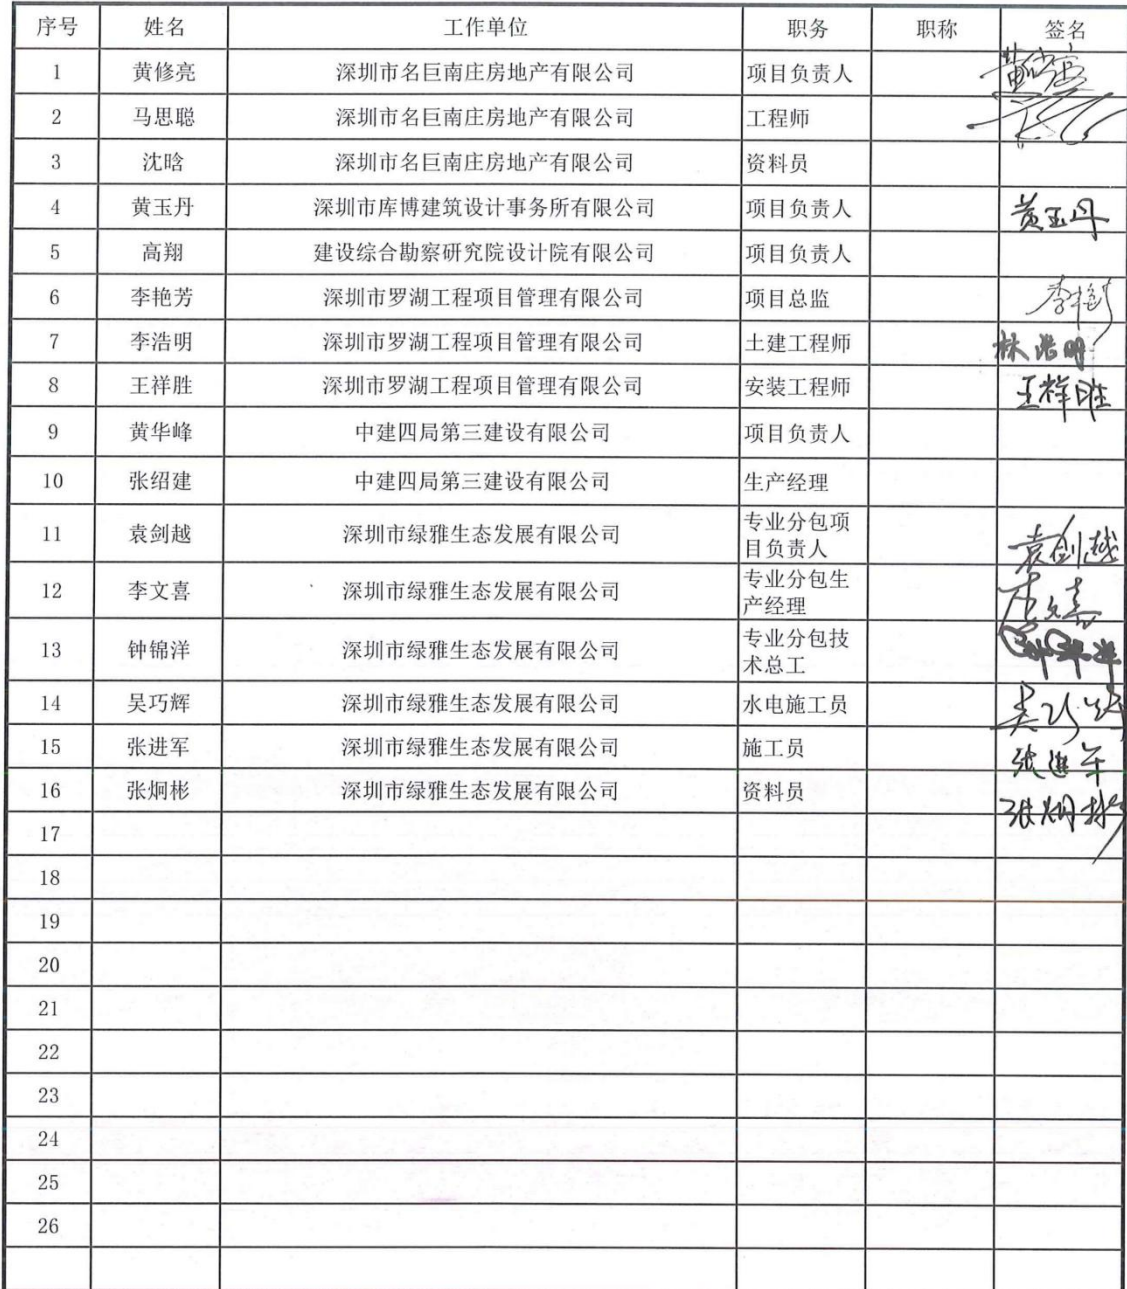 序号 姓名 工作单位 职务 职称 签名
1 黄修亮 深圳市名巨南庄房地产有限公司 项目负责人
2 马思聪 深圳市名巨南庄房地产有限公司 工程师
3 沈晗 深圳市名巨南庄房地产有限公司 资料员
4 黄玉丹 深圳市库博建筑设计事务所有限公司 项目负责人 黄玉丹
5 高翔 建设综合勘察研究院设计院有限公司 项目负责人
6 李艳芳 深圳市罗湖工程项目管理有限公司 项目总监
7 李浩明 深圳市罗湖工程项目管理有限公司 土建工程师 林浩明
8 王祥胜 深圳市罗湖工程项目管理有限公司 安装工程师 王祥胜
9 黄华峰 中建四局第三建设有限公司 项目负责人
10 张绍建 中建四局第三建设有限公司 生产经理
11 袁剑越 深圳市绿雅生态发展有限公司 专业分包项
目负责人 袁剑越
12 李文喜 深圳市绿雅生态发展有限公司 专业分包生
产经理 李文喜
13 钟锦洋 深圳市绿雅生态发展有限公司 专业分包技
术总工
14 吴巧辉 深圳市绿雅生态发展有限公司 水电施工员 吴巧辉
15 张进军 深圳市绿雅生态发展有限公司 施工员 张進军
16 张炯彬 深圳市绿雅生态发展有限公司 资料员 张炯彬
17
18
19
20
21
22
23
24
25
26